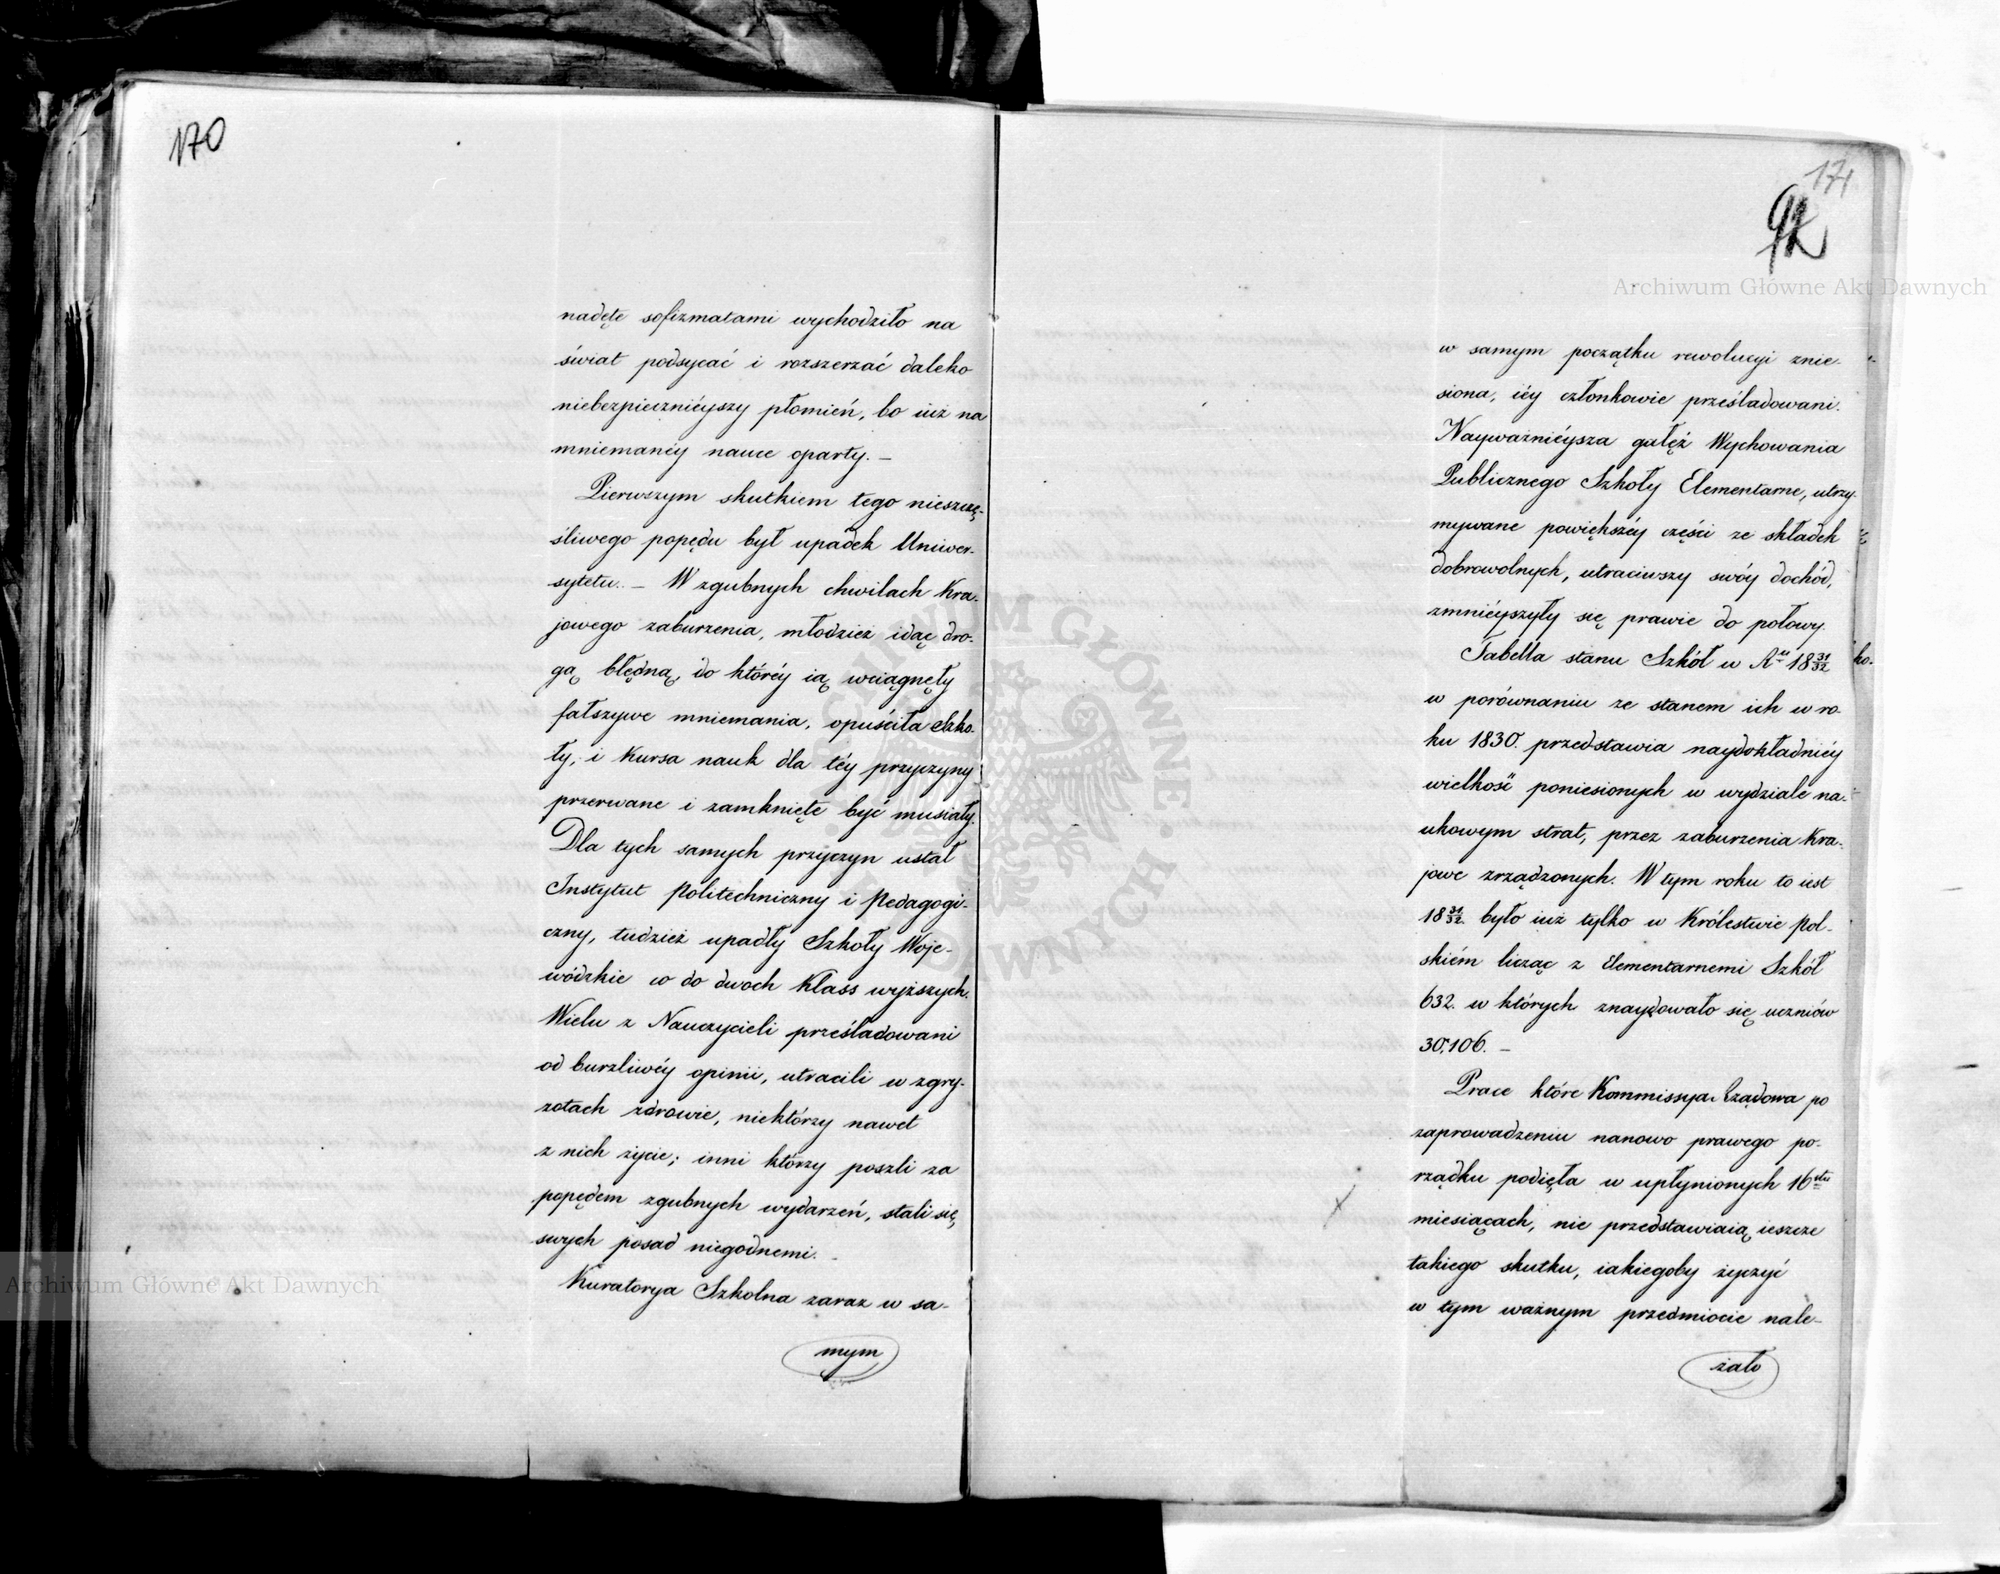 170
nadęte sofizmatami wychodziło na
świat podsycać i rozszerzać daleko
niebezpiecznićyszy płomień, bo iuż na
mniemanéy nauce oparty. —
Pierwszym skutkiem tego nieszczę-
śliwego popędu był upadek Uniwer-
sytetu. — W zgubnych chwilach Kra-
jowego zaburzenia, młodzież idąc dro-
gą błędną, do któréy ią wciągnęły
fałszywe mniemania, opuściła Szko-
ły, i Kursa nauk dla téy przyczyny
przerwane i zamknięte być musiały.
Dla tych samych przyczyn ustał
Instytut Politechniczny i Pedagogi-
czny, tudzież upadły Szkoły Woje-
wódzkie co do dwoch Klass wyższych.
Wielu z Nauczycieli prześladowani
od burzliwéy opinii, utracili w zgry-
zotach zdrowie, niektórzy nawet
z nich życie; inni którzy poszli za
popędem zgubnych wydarzeń, stali się
swych posad niegodnemi. —
Kuratorya Szkolna zaraz w sa-
mym
171
92
w samym początku rewolucyi znie-
siona, iéy członkowie prześladowani.
Nayważniéysza gałęź Wychowania
Publicznego Szkoły Elementarne, utrzy-
mywane powiększéy części ze składek
dobrowolnych, utraciwszy swóy dochód,
zmniéyszyły się prawie do połowy.
Tabella stanu Szkół w Rku 18 31/32
w porównaniu ze stanem ich w ro-
ku 1830. przedstawia naydokładniéy
wielkość poniesionych w wydziale na-
ukowym strat, przez zaburzenia Kra-
jowe zrządzonych. W tym roku to iest
18 31/32 było iuż tylko w Królestwie Pol-
skiém licząc z Elementarnemi Szkół
632. w których znaydowało się uczniów
30,106. —
Prace które Kommissya Rządowa po
zaprowadzeniu nanowo prawego po-
rządku podięła w upłynionych 16stu
miesiącach, nie przedstawiaią ieszcze
takiego skutku, iakiegoby życzyć
w tym ważnym przedmiocie nale-
żało
ko-
Archiwum Główne Akt Dawnych
Archiwum Główne Akt Dawnych
ARCHIWUM GŁÓWNE AKT DAWNYCH